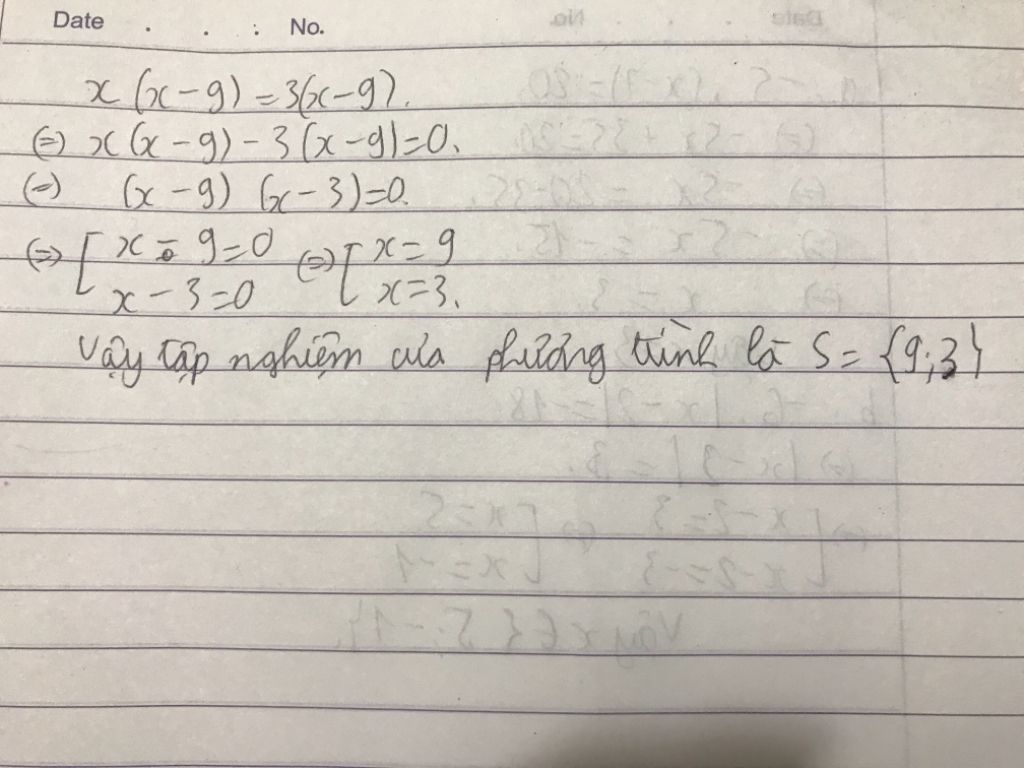 Date . . : No.
x(x-9)=3(x-9).
(=) x(x-9)-3(x-9)=0.
(=) (x-9) (x-3)=0.
(=) [ x-9=0 (=) [ x=9
x-3=0 x=3.
Vậy tập nghiệm của phương trình là S={9;3}